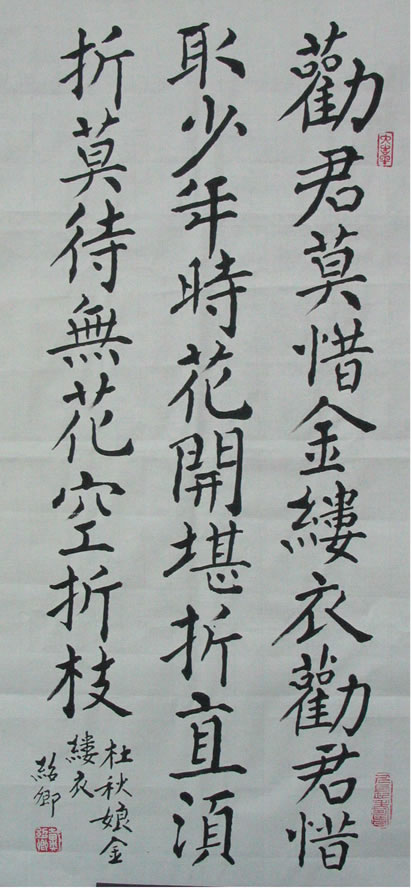 勸君莫惜金縷衣勸君惜
取少年時花開堪折直須
折莫待無花空折枝
杜秋娘金
縷衣
紹卿